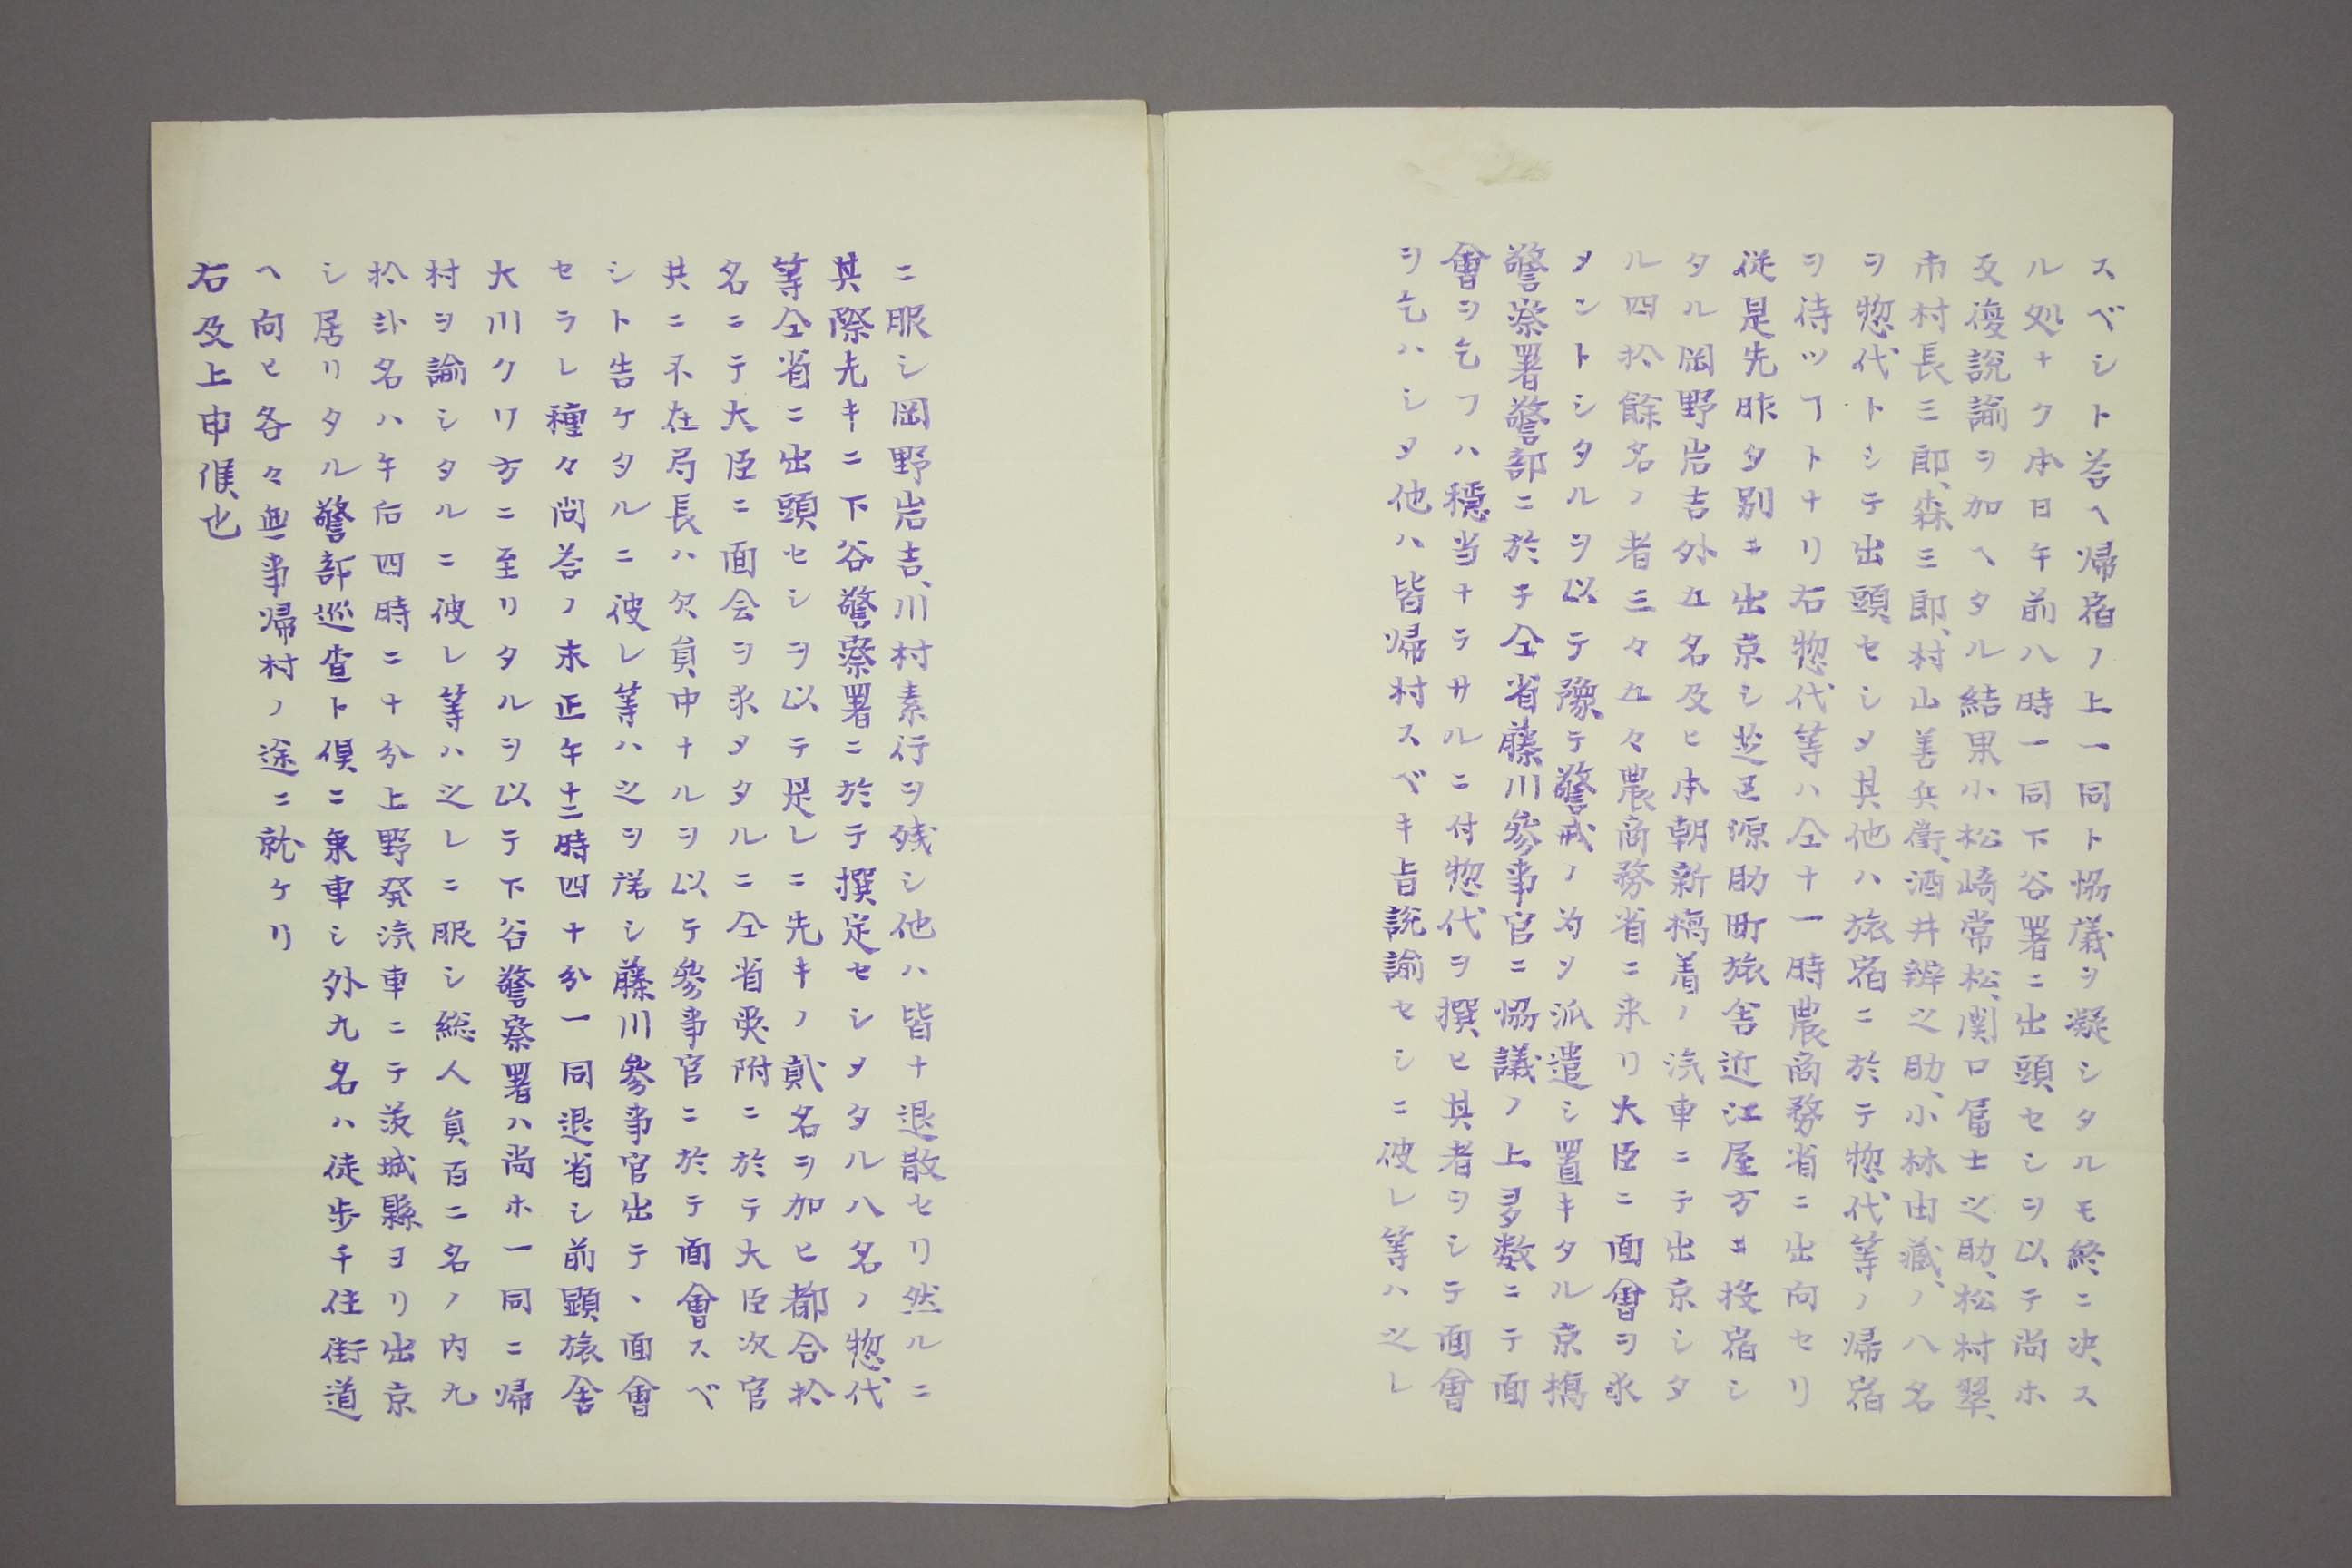 スベシト答ヘ帰宿ノ上一同ト協議ヲ凝シタルモ終ニ决ス
ル処ナク本日午前八時一同下谷署ニ出頭セシヲ以テ尚ホ
反復説諭ヲ加ヘタル結果小松崎常松、関口冨士之助、松村翠、
市村長三郎、森三郎、村山善兵衛、酒井辨之助、小林由藏、ノ八名
ヲ惣代トシテ出頭セシメ其他ハ旅宿ニ於テ惣代等ノ帰宿
ヲ待ツヿトナリ右惣代等ハ仝十一時農商務省ニ出向セリ
従是先昨夕別ニ出京シ芝区源助町旅舎近江屋方ニ投宿シ
タル岡野岩吉外五名及ヒ本朝新橋着ノ汽車ニテ出京シタ
ル四拾餘名ノ者三々五々農商務省ニ来リ大臣ニ面會ヲ求
メントシタルヲ以テ豫テ警戒ノ为メ派遣シ置キタル京橋
警察署警部ニ於テ仝省藤川參事官ニ協議ノ上多数ニテ面
會ヲ乞フハ穏当ナラサルニ付惣代ヲ撰ヒ其者ヲシテ面會
ヲ乞ハシメ他ハ皆帰村スベキ旨説諭セシニ彼レ等ハ之レ
ニ服シ岡野岩吉、川村素行ヲ残シ他ハ皆ナ退散セリ然ルニ
其際先キニ下谷警察署ニ於テ撰定セシメタル八名ノ惣代
等仝省ニ出頭セシヲ以テ是レニ先キノ貮名ヲ加ヒ都合拾
名ニテ大臣ニ面会ヲ求メタルニ仝省受附ニ於テ大臣次官
共ニ不在局長ハ欠員中ナルヲ以テ參事官ニ於テ面會スベ
シト告ケタルニ彼レ等ハ之ヲ諾シ藤川參事官出テヽ面會
セラレ種々問答ノ末正午十二時四十分一同退省シ前顕旅舎
大川クリ方ニ至リタルヲ以テ下谷警察署ハ尚ホ一同ニ帰
村ヲ諭シタルニ彼レ等ハ之レニ服シ総人員百二名ノ内九
拾卦名ハ午后四時二十分上野発汽車ニテ茨城縣ヨリ出京
シ居リタル警部巡査ト俱ニ乗車シ外九名ハ徒歩千住街道
ヘ向ヒ各々無事帰村ノ途ニ就ケリ
右及上申候也